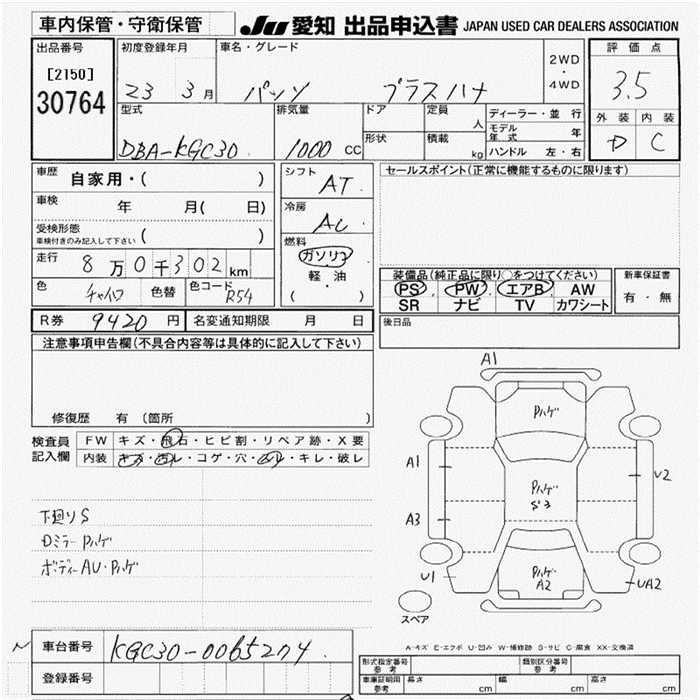 車内保管・守衛保管
JU 愛知 出品申込書 JAPAN USED CAR DEALERS ASSOCIATION
出品番号
[2150]
30764
初度登録年月
23 3月
車名・グレード
パッソ プラスハナ
2WD
・
4WD
評価点
3.5
外装 内装
D C
型式
DBA-KGC30
排気量
1000 CC
ドア
形状
定員 人
積載 kg
ディーラー・並行
モデル年式 年
ハンドル 左・右
車歴 自家用・( )
車検 年 月( 日)
受検形態
車検付きのみ記入して下さい ( )
走行 8万0千302km
色 チャイロ 色替 色コード R54
シフト
AT
冷房
AC
燃料
ガソリン
軽・油
( )
セールスポイント(正常に機能するものに限ります)
装備品(純正品に限り○をつけてください)
PS PW エアB AW
SR ナビ TV カワシート
新車保証書
有・無
R券 9420円 名変通知期限 月 日
後日品
注意事項申告欄(不具合内容等は具体的に記入して下さい)
修復歴 有 (箇所 )
検査員
記入欄
FW キズ・飛石・ヒビ割・リペア跡・X要
内装 キズ・汚レ・コゲ・穴・凹レ・キレ・破レ
下廻りS
Dミラー Pハゲ
ボディーAU・Pハゲ
A1
Pハゲ
A1
U2
Pハゲ
S3
A3
U1
Pハゲ
A2
UA2
スペア
A-キズ E-エクボ U-凹み W-補修跡 S-サビ C-腐食 XX-交換済
車台番号 KGC30-0065274
登録番号
形式指定番号
参考
類別区分番号
参考
車庫証明用
参考
長さ cm 幅 cm 高さ cm